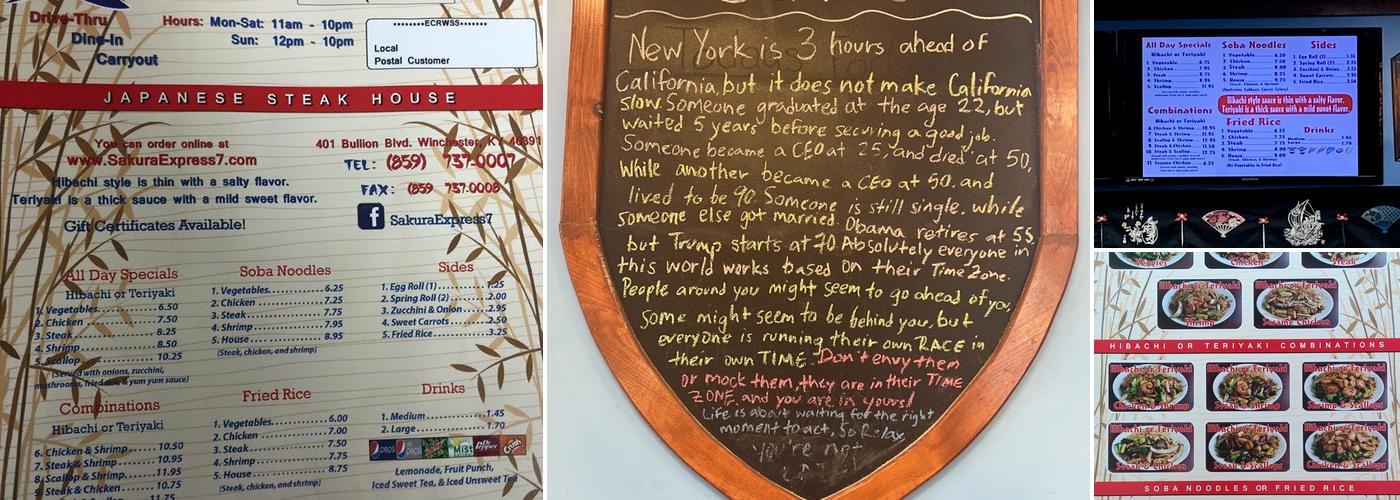 Drive-Thru
Dine-In
Carryout
Hours: Mon-Sat: 11am - 10pm
Sun: 12pm - 10pm
********ECRWSS*******
Local
Postal Customer
JAPANESE STEAK HOUSE
You can order online at
www.SakuraExpress7.com
401 Bullion Blvd. Winchester, KY 40391
TEL: (859) 737-0007
FAX: (859 737-0008
Hibachi style is thin with a salty flavor.
Teriyaki is a thick sauce with a mild sweet flavor.
Gift Certificates Available!
f SakuraExpress7
All Day Specials
Hibachi or Teriyaki
1. Vegetables 6.50
2. Chicken 7.50
3. Steak 8.25
4. Shrimp 8.50
5. Scallop 10.25
(Served with onions, zucchini,
mushrooms, fried rice, & yum yum sauce)
Combinations
Hibachi or Teriyaki
6. Chicken & Shrimp 10.50
7. Steak & Shrimp 10.95
8. Scallop & Shrimp 11.95
9. Steak & Chicken 10.75
11.75
Soba Noodles
1. Vegetables 6.25
2. Chicken 7.25
3. Steak 7.75
4. Shrimp 7.95
5. House 8.95
(Steak, chicken, and shrimp)
Fried Rice
1. Vegetables 6.00
2. Chicken 7.00
3. Steak 7.50
4. Shrimp 7.75
5. House 8.75
(Steak, chicken, and shrimp)
Sides
1. Egg Roll (1) 1.25
2. Spring Roll (2) 2.00
3. Zucchini & Onion 2.95
4. Sweet Carrots 2.50
5. Fried Rice 3.25
Drinks
1. Medium 1.45
2. Large 1.70
Mist
Dr Pepper
Crush
Lemonade, Fruit Punch,
Iced Sweet Tea, & Iced Unsweet Tea
New York is 3 hours ahead of
California, but it does not make California
slow. Someone graduated at the age 22, but
waited 5 years before securing a good job.
Someone became a CEO at 25, and died at 50,
While another became a CEO at 50, and
lived to be 90. Someone is still single, while
someone else got married. Obama retires at 55,
but Trump starts at 70 Absolutely everyone in
this world works based on their Time Zone.
People around you might seem to go ahead of you,
some might seem to be behind you, but
everyone is running their own RACE in
their own TIME. Don't envy them
or mock them, they are in their TIME
ZONE, and you are in yours!
Life is about waiting for the right
moment to act, So Relax,
you're not
All Day Specials
Hibachi or Teriyaki
1. Vegetable 6.75
2. Chicken 7.95
3. Steak 8.75
4. Shrimp 8.95
5. Scallop 11.95
Combinations
Hibachi or Teriyaki
Soba Noodles
1. Vegetable 6.50
2. Chicken 7.50
3. Steak 8.00
4. Shrimp 8.25
5. House
Sides
1. Egg Roll (1)
2. Spring Roll (2)
3. Zucchini & Onion
4. Sweet Carrots
5. Fried Rice
Hibachi style sauce is thin with a salty flavor.
Teriyaki is a thick sauce with a mild sweet flavor.
Fried Rice
1. Vegetable 6.25
2. Chicken 7.25
3. Steak 7.75
4. Shrimp 8.00
5. House 9.00
Drinks
Veggies
Chicken
Steak
Hibachi or Teriyaki
Shrimp
Hibachi or Teriyaki
Sesame Chicken
HIBACHI OR TERIYAKI COMBINATIONS
Hibachi or Teriyaki
Chicken & Shrimp
Hibachi or Teriyaki
Steak & Shrimp
Hibachi or Teriyaki
Shrimp & Scallops
Hibachi or Teriyaki
Steak & Chicken
Hibachi or Teriyaki
Steak & Scallops
Hibachi or Teriyaki
Chicken & Scallops
SOBA NOODLES OR FRIED RICE